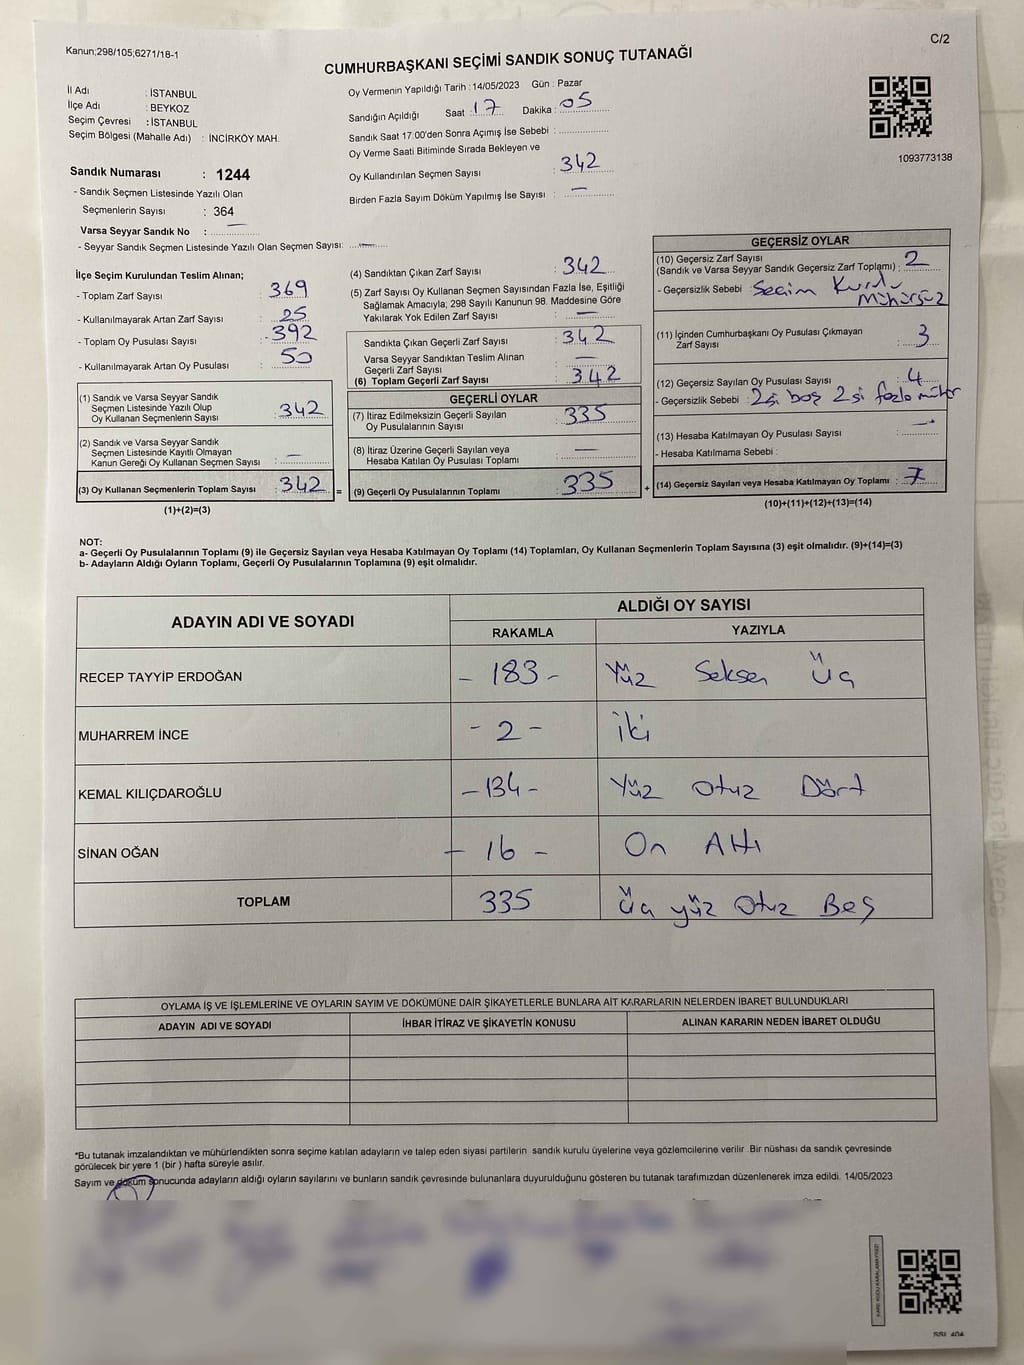 Kanun;298/105;6271/18-1
C/2
CUMHURBAŞKANI SEÇİMİ SANDIK SONUÇ TUTANAĞI
İl Adı : İSTANBUL
İlçe Adı : BEYKOZ
Seçim Çevresi : İSTANBUL
Seçim Bölgesi (Mahalle Adı) : İNCİRKÖY MAH.
Oy Vermenin Yapıldığı Tarih : 14/05/2023 Gün : Pazar
Sandığın Açıldığı Saat : 17 Dakika : 05
Sandık Saat 17:00'den Sonra Açımış İse Sebebi :
Oy Verme Saati Bitiminde Sırada Bekleyen ve
Oy Kullandırılan Seçmen Sayısı : 342
Birden Fazla Sayım Döküm Yapılmış İse Sayısı : —
1093773138
Sandık Numarası : 1244
- Sandık Seçmen Listesinde Yazılı Olan
Seçmenlerin Sayısı : 364
Varsa Seyyar Sandık No : —
- Seyyar Sandık Seçmen Listesinde Yazılı Olan Seçmen Sayısı: —
İlçe Seçim Kurulundan Teslim Alınan;
- Toplam Zarf Sayısı : 369
- Kullanılmayarak Artan Zarf Sayısı : 25
- Toplam Oy Pusulası Sayısı : 392
- Kullanılmayarak Artan Oy Pusulası : 50
(1) Sandık ve Varsa Seyyar Sandık
Seçmen Listesinde Yazılı Olup
Oy Kullanan Seçmenlerin Sayısı : 342
(2) Sandık ve Varsa Seyyar Sandık
Seçmen Listesinde Kayıtlı Olmayan
Kanun Gereği Oy Kullanan Seçmen Sayısı : —
(3) Oy Kullanan Seçmenlerin Toplam Sayısı : 342 =
(1)+(2)=(3)
(4) Sandıktan Çıkan Zarf Sayısı : 342
(5) Zarf Sayısı Oy Kullanan Seçmen Sayısından Fazla İse, Eşitliği
Sağlamak Amacıyla; 298 Sayılı Kanunun 98. Maddesine Göre
Yakılarak Yok Edilen Zarf Sayısı : —
Sandıkta Çıkan Geçerli Zarf Sayısı : 342
Varsa Seyyar Sandıktan Teslim Alınan
Geçerli Zarf Sayısı : —
(6) Toplam Geçerli Zarf Sayısı : 342
GEÇERLİ OYLAR
(7) İtiraz Edilmeksizin Geçerli Sayılan
Oy Pusulalarının Sayısı : 335
(8) İtiraz Üzerine Geçerli Sayılan veya
Hesaba Katılan Oy Pusulası Toplamı : —
(9) Geçerli Oy Pusulalarının Toplamı : 335 +
GEÇERSİZ OYLAR
(10) Geçersiz Zarf Sayısı
(Sandık ve Varsa Seyyar Sandık Geçersiz Zarf Toplamı) : 2
- Geçersizlik Sebebi : Seçim Kurulu
Mühürsüz
(11) İçinden Cumhurbaşkanı Oy Pusulası Çıkmayan
Zarf Sayısı : 3
(12) Geçersiz Sayılan Oy Pusulası Sayısı : 4
- Geçersizlik Sebebi : 2si boş 2si fazla mühür
(13) Hesaba Katılmayan Oy Pusulası Sayısı : —
- Hesaba Katılmama Sebebi :
(14) Geçersiz Sayılan veya Hesaba Katılmayan Oy Toplamı : 7
(10)+(11)+(12)+(13)=(14)
NOT:
a- Geçerli Oy Pusulalarının Toplamı (9) ile Geçersiz Sayılan veya Hesaba Katılmayan Oy Toplamı (14) Toplamları, Oy Kullanan Seçmenlerin Toplam Sayısına (3) eşit olmalıdır. (9)+(14)=(3)
b- Adayların Aldığı Oyların Toplamı, Geçerli Oy Pusulalarının Toplamına (9) eşit olmalıdır.
ADAYIN ADI VE SOYADI ALDIĞI OY SAYISI
RAKAMLA YAZIYLA
RECEP TAYYİP ERDOĞAN - 183 - Yüz Seksen Üç
MUHARREM İNCE - 2 - İki
KEMAL KILIÇDAROĞLU - 134 - Yüz Otuz Dört
SİNAN OĞAN - 16 - On Altı
TOPLAM 335 Üç yüz Otuz Beş
OYLAMA İŞ VE İŞLEMLERİNE VE OYLARIN SAYIM VE DÖKÜMÜNE DAİR ŞİKAYETLERLE BUNLARA AİT KARARLARIN NELERDEN İBARET BULUNDUKLARI
ADAYIN ADI VE SOYADI İHBAR İTİRAZ VE ŞİKAYETİN KONUSU ALINAN KARARIN NEDEN İBARET OLDUĞU
*Bu tutanak imzalandıktan ve mühürlendikten sonra seçime katılan adayların ve talep eden siyasi partilerin sandık kurulu üyelerine veya gözlemcilerine verilir. Bir nüshası da sandık çevresinde
görülecek bir yere 1 (bir ) hafta süreyle asılır.
Sayım ve döküm sonucunda adayların aldığı oyların sayılarını ve bunların sandık çevresinde bulunanlara duyurulduğunu gösteren bu tutanak tarafımızdan düzenlenerek imza edildi. 14/05/2023